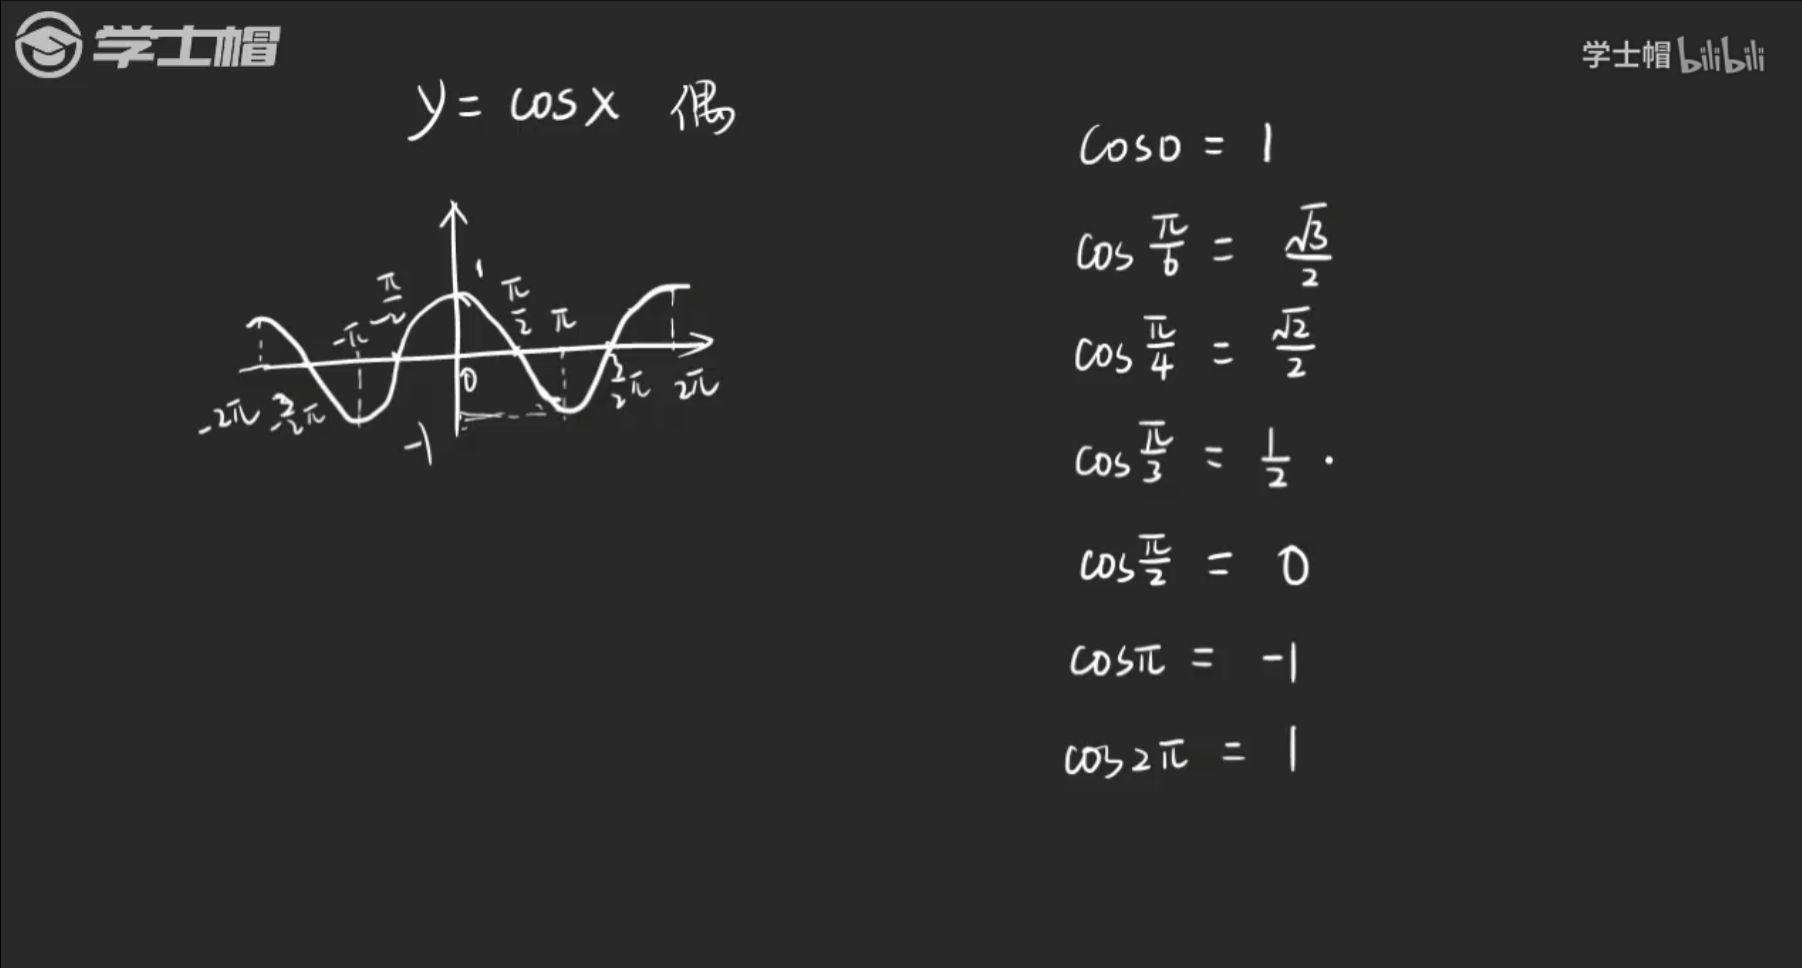 学士帽
学士帽 bilibili
y = cosx 偶
1
π/2
π/-2
-π
π
0
-2π
3/-2π
3/2π
2π
-1
cos0 = 1
cos π/6 = √3/2
cos π/4 = √2/2
cos π/3 = 1/2 .
cos π/2 = 0
cosπ = -1
cos2π = 1